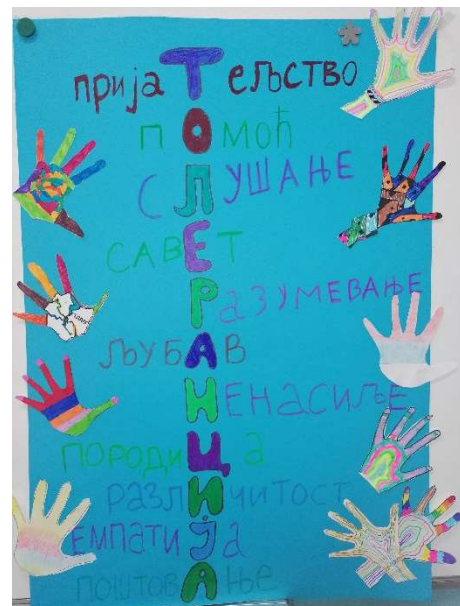 пријаТељство
пОмоћ
сЛУШАЊЕ
САВЕТ
РаЗУМЕВАЊЕ
ЉУБАВ
НЕНАСИЉЕ
ПОРОДИЦа
РаЗЛИЧИТОСТ
ЕМПАТИЈа
ПОШТОВАЊЕ